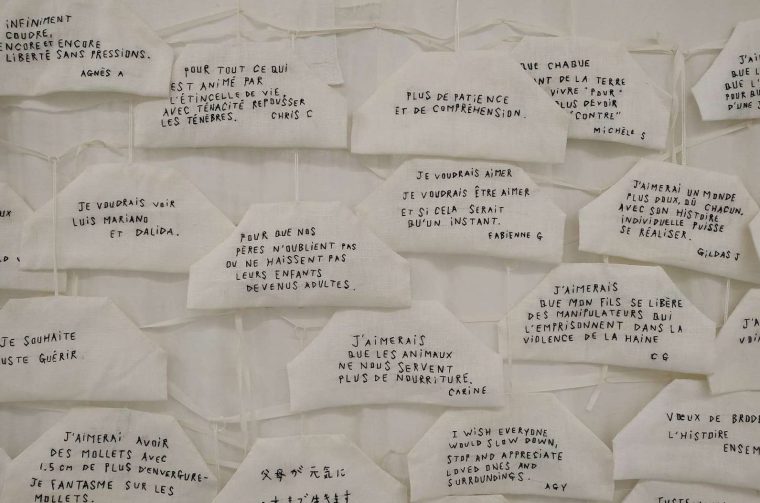 INFINIMENT
COUDRE,
ENCORE ET ENCORE
LIBERTÉ SANS PRESSIONS.
AGNÈS A
POUR TOUT CE QUI
EST ANIMÉ PAR
L'ÉTINCELLE DE VIE,
AVEC TÉNACITÉ REPOUSSER
LES TÉNÈBRES.
CHRIS C
PLUS DE PATIENCE
ET DE COMPRÉHENSION.
QUE CHAQUE
DE LA TERRE
VIVRE "POUR"
DEVOIR
"CONTRE"
MICHÈLE S
JE VOUDRAIS VOIR
LUIS MARIANO
ET DALIDA.
POUR QUE NOS
PÈRES N'OUBLIENT PAS
OU NE HAISSENT PAS
LEURS ENFANTS
DEVENUS ADULTES.
JE VOUDRAIS AIMER
JE VOUDRAIS ÊTRE AIMER
ET SI CELA SERAIT
QU'UN INSTANT.
FABIENNE G
J'AIMERAI UN MONDE
PLUS DOUX, OÙ CHACUN,
AVEC SON HISTOIRE
INDIVIDUELLE PUISSE
SE RÉALISER.
GILDAS J
JE SOUHAITE
JUSTE GUÉRIR.
J'AIMERAIS
QUE LES ANIMAUX
NE NOUS SERVENT
PLUS DE NOURRITURE.
CARINE
J'AIMERAIS
QUE MON FILS SE LIBÈRE
DES MANIPULATEURS QUI
L'EMPRISONNENT DANS LA
VIOLENCE DE LA HAINE
CG
J'AIMERAI AVOIR
DES MOLLETS AVEC
1.5 CM DE PLUS D'ENVERGURE-
JE FANTASME SUR LES
MOLLETS.
父母が元気に
I WISH EVERYONE
WOULD SLOW DOWN,
STOP AND APPRESIATE
LOVED ONES AND
SURROUNDINGS.
AGY
VŒUX DE
L'HISTOIRE